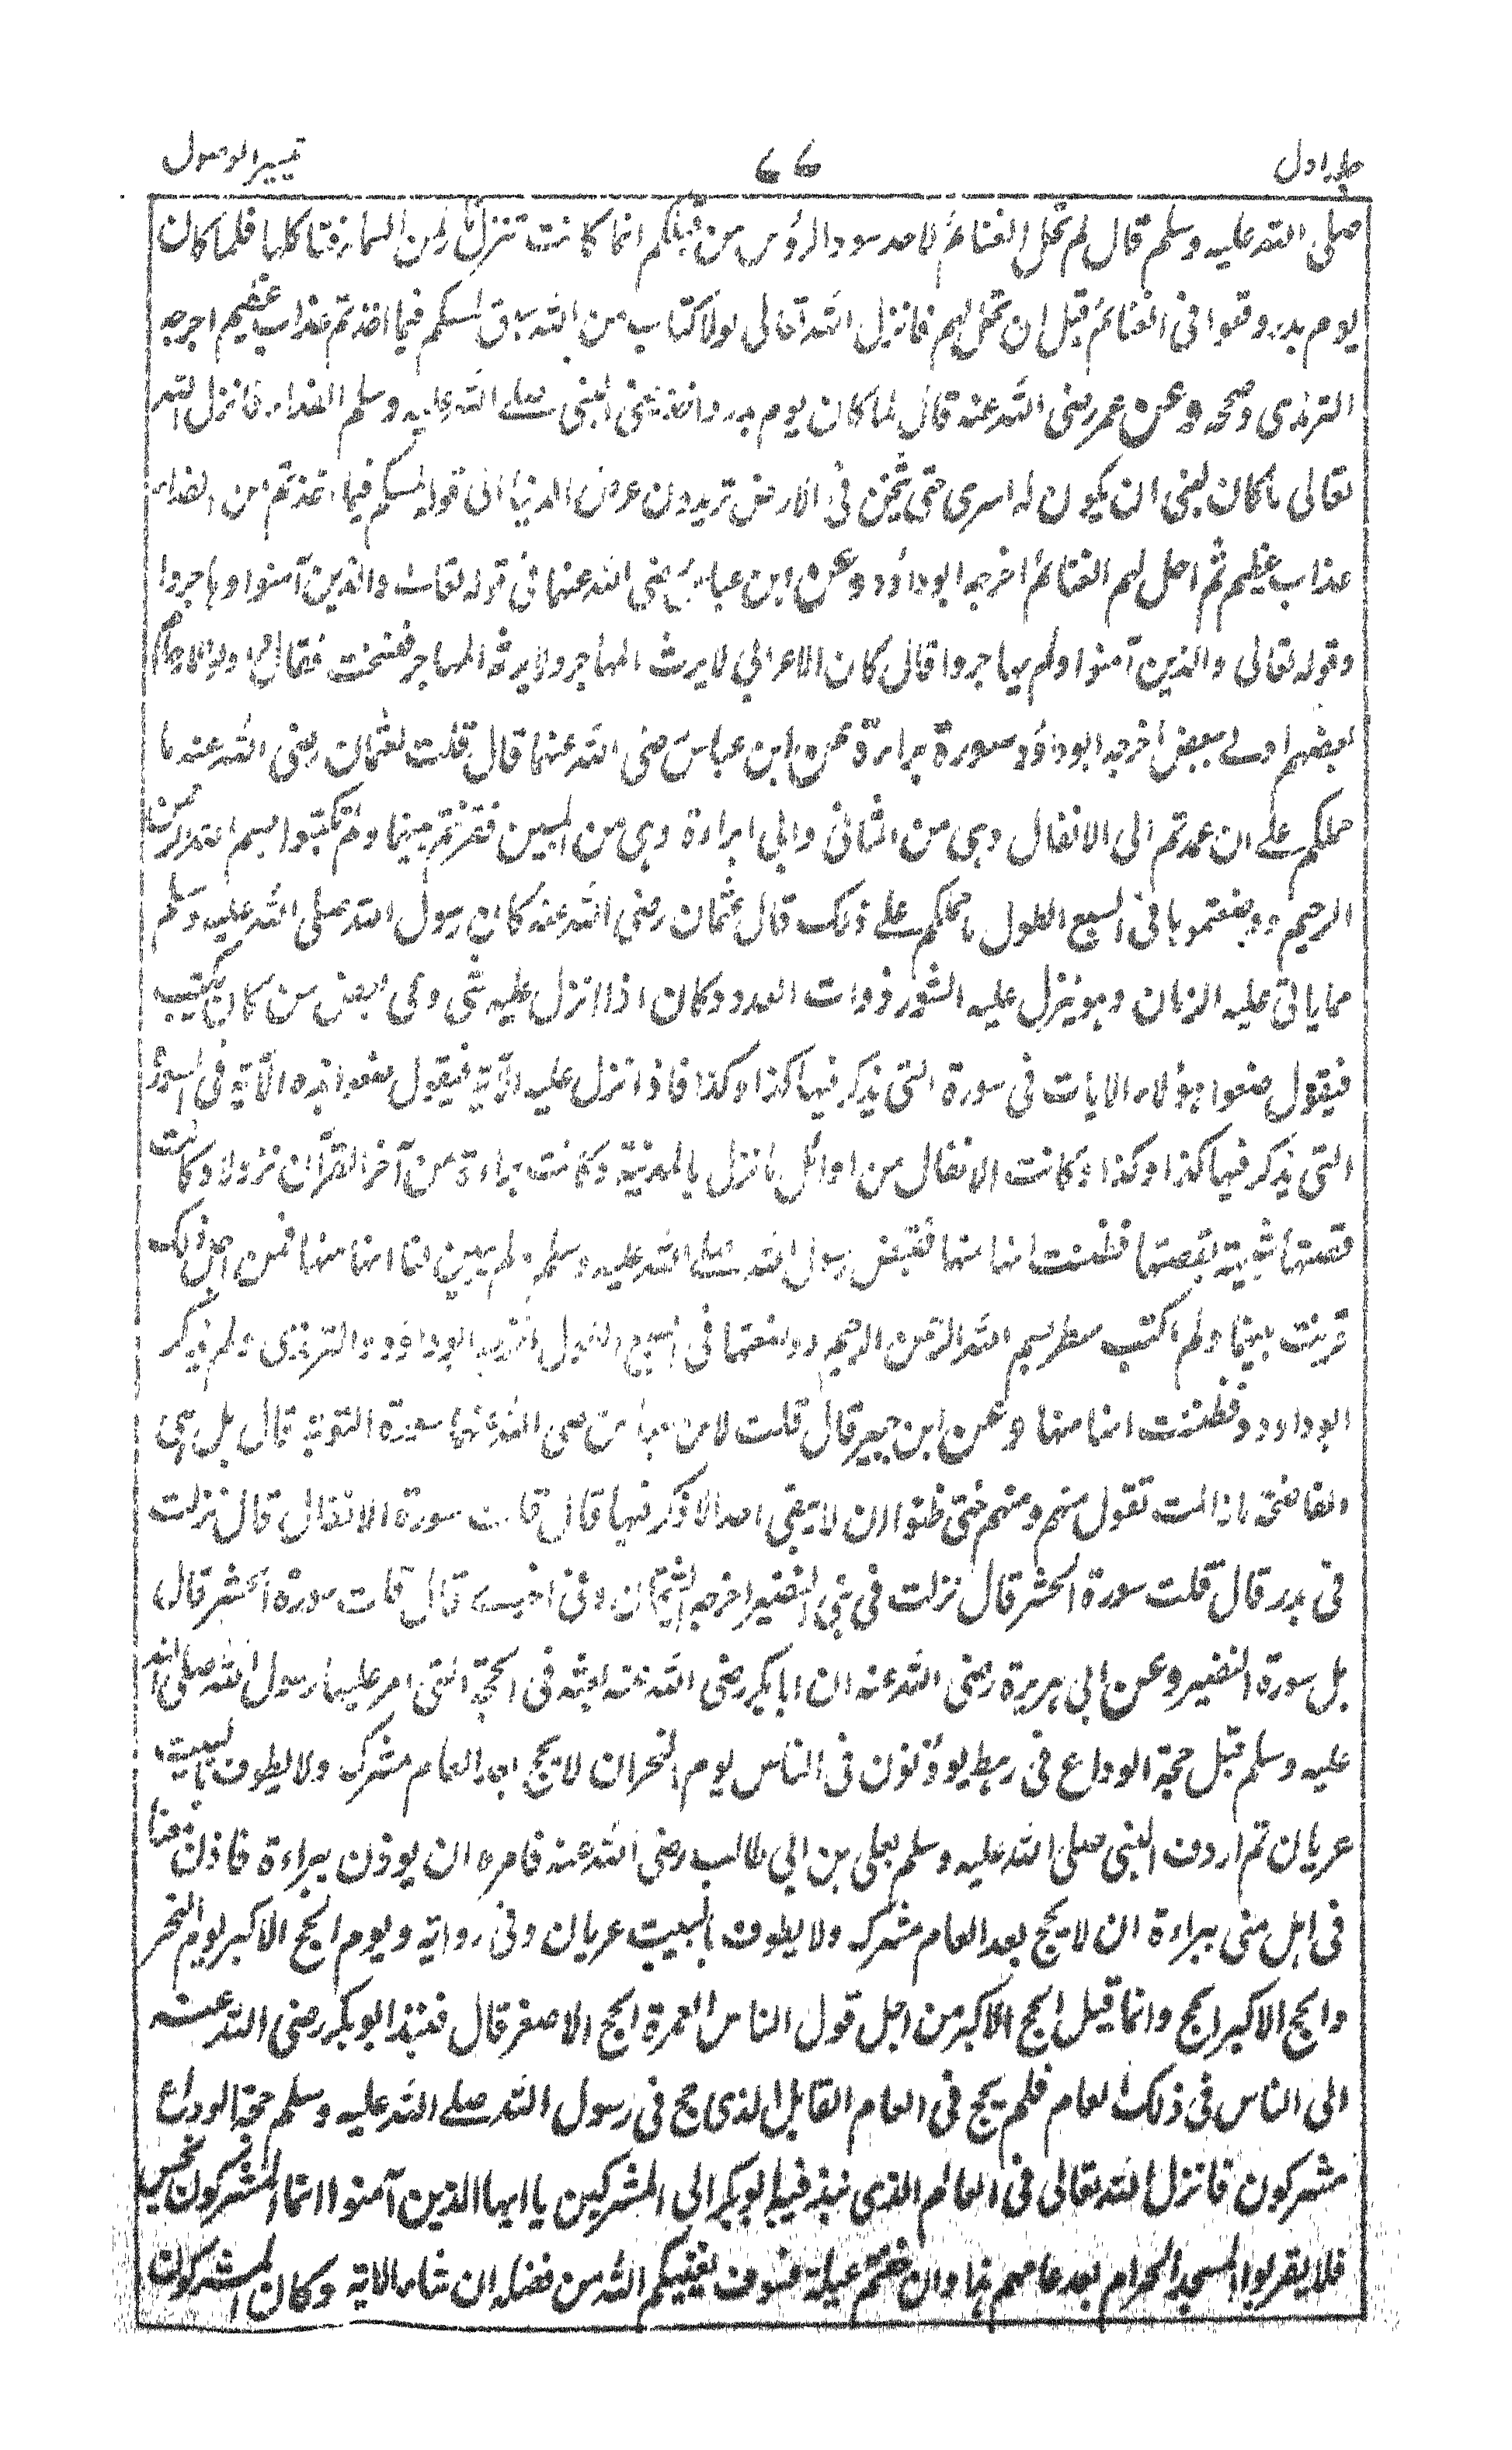 جلد اول ٧٧ تيسير الوصول
صلى الله عليه وسلم قال لم تحل الغنائم لاحد سود الرؤس من قبلكم انما كانت تنزل نار من السماء فتاكلها فلما كان
يوم بدر وقعوا فى الغنائم قبل ان تحل لهم فانزل الله تعالى لولا كتاب من الله سبق لمسكم فيما اخذتم عذاب عظيم اخرجه
الترمذى وصححه وعن عمر رضى الله عنه قال لما كان يوم بدر واخذ يعنى النبى صلے الله عليه وسلم الفداء فانزل الله
تعالى ما كان لنبى ان يكون له اسرى حتى يثخن فى الارض تريدون عرض الدنيا الى قوله لمسكم فيما اخذتم من الفداء
عذاب عظيم ثم احل لهم الغنائم اخرجه ابو داؤد وعن ابن عباس رضى الله عنهما فى قوله تعالے والذين آمنوا وهاجروا
وقوله تعالى والذين آمنوا ولم يهاجروا قال كان الاعرابى لا يرث المهاجر ولا يرثه المهاجر فنسخت فقال واولو الارحام
بعضهم اولے ببعض اخرجه ابو داؤد سورة براءة عن ابن عباس رضى الله عنهما قال قلت لعثمان رضى الله عنه ما
حملكم علے ان عمدتم الى الانفال وهى من المثانى والى براءة وهى من المئين فقرنتم بينهما ولم تكتبوا بسم الله الرحمن
الرحيم ووضعتموها فى السبع الطول ما حملكم علے ذلك قال عثمان رضى الله عنه كان رسول الله صلى الله عليه وسلم
مما ياتى عليه الزمان وهو ينزل عليه السور ذوات العدد وكان اذا انزل عليه شئ دعى بعض من كان يكتب
فيقول ضعوا هؤلاء الايات فى سورة التى يذكر فيها كذا وكذا فاذا نزل عليه الآية فيقول ضعوا هذه الآية فى السورة
التى يذكر فيها كذا وكذا وكانت الانفال من اوائل ما نزل بالمدينة وكانت براءة من آخر القرآن نزولا وكانت
قصتها شبيهة بقصتها فظننت انها منها فقبض رسول الله صلے الله عليه وسلم ولم يبين لنا انها منها فمن اجل ذلك
قرنت بينهما ولم اكتب سطر بسم الله الرحمن الرحيم ووضعتها فى السبع الطول اخرجه ابو داود والترمذى ولم يذكر
ابو داود وظننت انها منها وعن ابن جبير قال قلت لابن عباس رضى الله عنهما سورة التوبة قال بل هى
الفاضحة ما زالت تقول منهم ومنهم حتى ظنوا ان لا يبقى احد الا ذكر فيها قال قلت سورة الانفال قال نزلت
فى بدر قال قلت سورة الحشر قال نزلت فى بنى النضير اخرجه الشيخان وفى اخرے قال قلت سورة الحشر قال
بل سورة النضير وعن ابى هريرة رضى الله عنه ان ابا بكر رضى الله عنه بعثه فى الحجة التى امر عليها رسول الله صلى الله
عليه وسلم قبل حجة الوداع فى رهط يوذنون فى الناس يوم النحر ان لا يحج بعد العام مشرك ولا يطوف بالبيت
عريان ثم اردف النبى صلى الله عليه وسلم بعلى بن ابى طالب رضى الله عنه فامره ان يوذن ببراءة فاذن معنا
فى اهل منى ببراءة ان لا يحج بعد العام مشرك ولا يطوف بالبيت عريان وفى رواية ويوم الحج الاكبر يوم النحر
والحج الاكبر الحج وانما قيل الحج الاكبر من اجل قول الناس العمرة الحج الاصغر قال فنبذ ابو بكر رضى الله عنه
الى الناس فى ذلك العام فلم يحج فى العام القابل الذى حج فى رسول الله صلے الله عليه وسلم حجة الوداع
مشركون فانزل الله تعالى فى العام الذى نبذ فيه ابو بكر الى المشركين يا ايها الذين آمنوا انما المشركون نجس
فلا يقربوا المسجد الحرام بعد عامهم هذا وان خفتم عيلة فسوف يغنيكم الله من فضله ان شاء الاية وكان المشركون